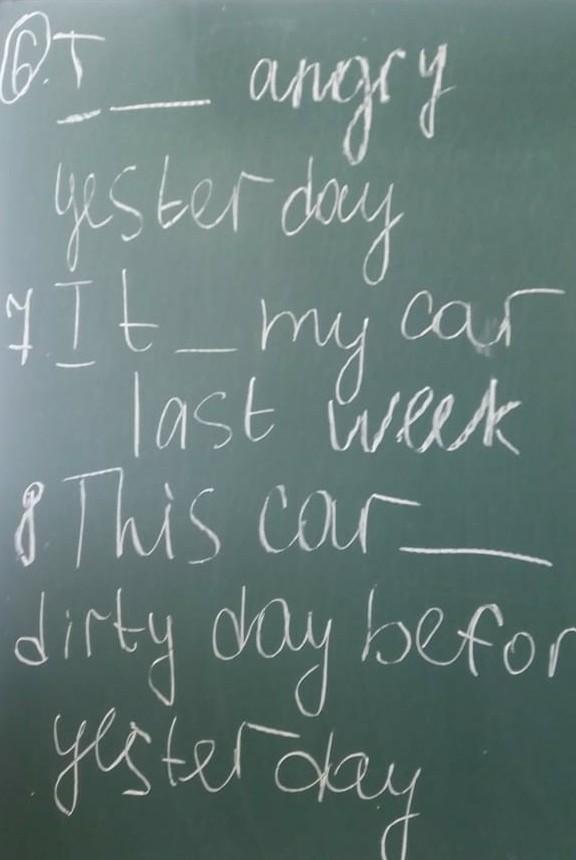 6. I __ angry
yesterday
7 It _ my car
last week
8 This car ___
dirty day befor
yesterday